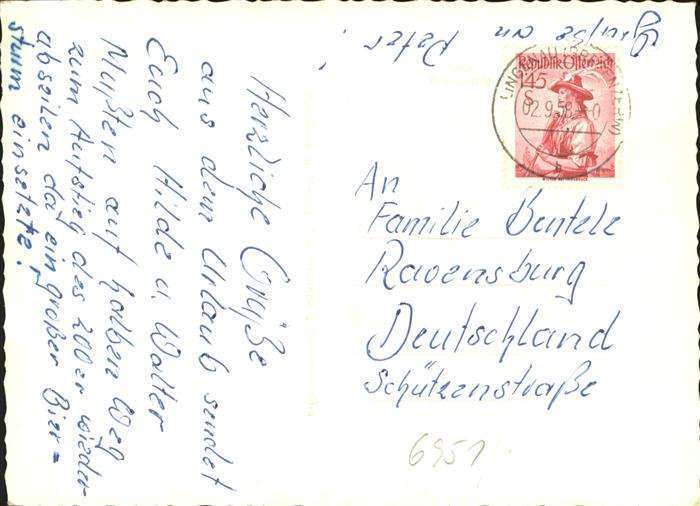 Herzliche Grüße
aus dem Urlaub sendet
Euch Hilde u. Walter
Mußten auf halben Weg
zum Aufstieg des 200er wieder
abseilen da ein großer Bier=
sturm einsetzte.
Grüße an Peter
Republik Österreich
1.45
S
02.9.58
An
Familie Bentele
Ravensburg
Deutschland
Schützenstraße
6951